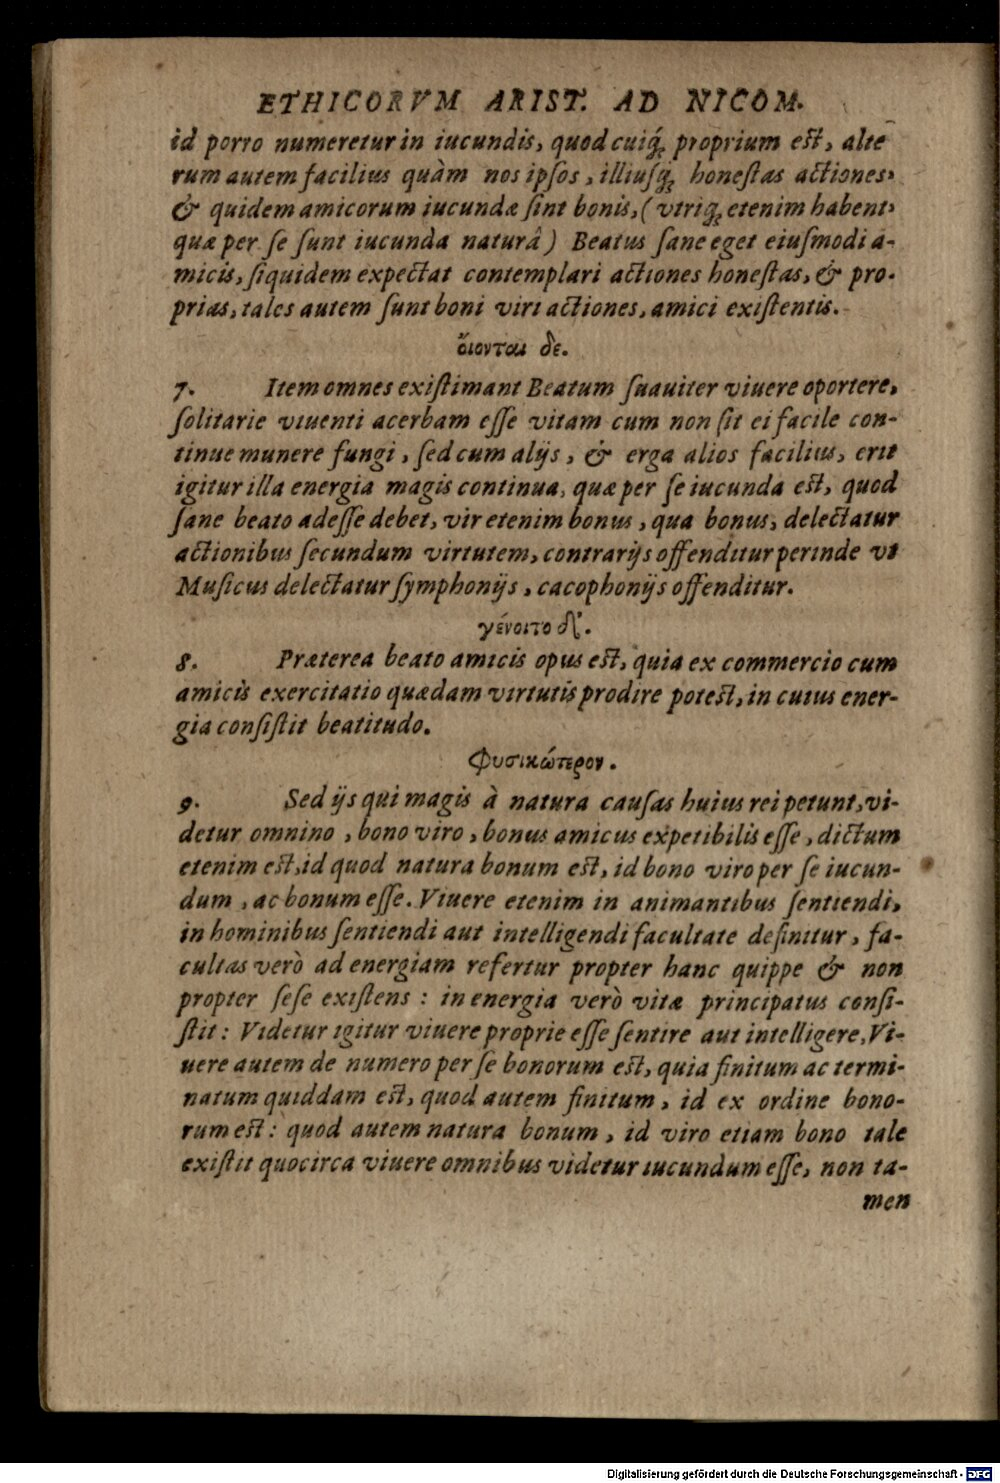 ETHICORVM ARIST. AD NICOM.
id porro numeretur in iucundis, quod cuiq́; proprium est, alte
rum autem facilius quàm nos ipsos, illiusq́; honestas actiones,
& quidem amicorum iucundæ sint bonis, (vtriq; etenim habent,
quæ per se sunt iucunda naturâ) Beatus sane eget eiusmodi a-
micis, siquidem expectat contemplari actiones honestas, & pro-
prias, tales autem sunt boni viri actiones, amici existentis.
ὄιονται δὲ.
7. Item omnes existimant Beatum suauiter viuere oportere,
solitarie viuenti acerbam esse vitam cum non sit ei facile con-
tinue munere fungi, sed cum alijs, & erga alios facilius, erit
igitur illa energia magis continua, quæ per se iucunda est, quod
sane beato adesse debet, vir etenim bonus, qua bonus, delectatur
actionibus secundum virtutem, contrarijs offenditur perinde vt
Musicus delectatur symphonijs, cacophonijs offenditur.
γένοιτο δ'.
8. Præterea beato amicis opus est, quia ex commercio cum
amicis exercitatio quædam virtutis prodire potest, in cuius ener-
gia consistit beatitudo.
Φυσικώτερον.
9. Sed ijs qui magis à natura causas huius rei petunt, vi-
detur omnino, bono viro, bonus amicus expetibilis esse, dictum
etenim est, id quod natura bonum est, id bono viro per se iucun-
dum, ac bonum esse. Viuere etenim in animantibus sentiendi,
in hominibus sentiendi aut intelligendi facultate definitur, fa-
cultas verò ad energiam refertur propter hanc quippe & non
propter sese existens: in energia verò vitæ principatus consi-
stit: Videtur igitur viuere proprie esse sentire aut intelligere, Vi-
uere autem de numero per se bonorum est, quia finitum ac termi-
natum quiddam est, quod autem finitum, id ex ordine bono-
rum est: quod autem natura bonum, id viro etiam bono tale
existit quocirca viuere omnibus videtur iucundum esse, non ta-
men
Digitalisierung gefördert durch die Deutsche Forschungsgemeinschaft - DFG